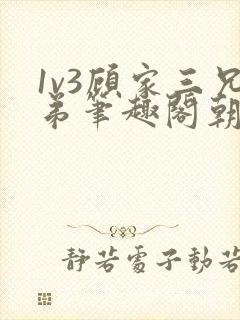 1v3顾家三兄
弟笔趣阁朝
静若電子動若